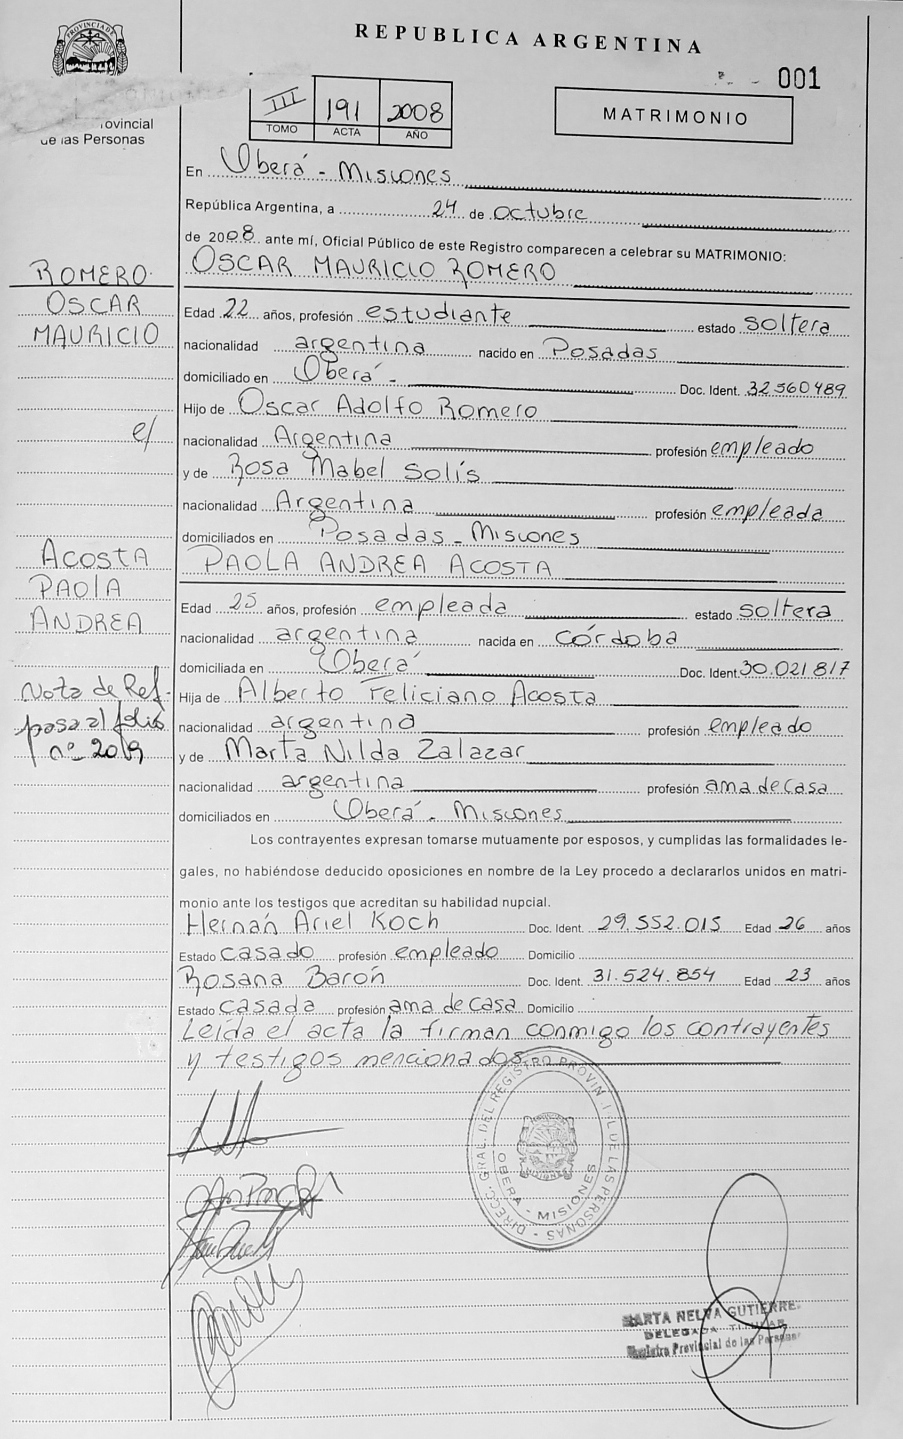 PROVINCIA DE
MISIONES
REPUBLICA ARGENTINA
001
III 191 2008
TOMO ACTA AÑO
MATRIMONIO
rovincial
de las Personas
En Oberá - Misiones
República Argentina, a 24 de octubre
de 2008 ante mí, Oficial Público de este Registro comparecen a celebrar su MATRIMONIO:
OSCAR MAURICIO ROMERO
Edad 22 años, profesión estudiante estado soltera
nacionalidad argentina nacido en Posadas
domiciliado en Oberá - Doc. Ident. 32.560.489
Hijo de Oscar Adolfo Romero
nacionalidad Argentina profesión empleado
y de Rosa Mabel Solís
nacionalidad Argentina profesión empleada
domiciliados en Posadas - Misiones
PAOLA ANDREA ACOSTA
Edad 25 años, profesión empleada estado soltera
nacionalidad argentina nacida en Córdoba
domiciliada en Oberá Doc. Ident. 30.021.817
Hija de Alberto Feliciano Acosta
nacionalidad argentina profesión empleado
y de Marta Nilda Zalazar
nacionalidad argentina profesión ama de casa
domiciliados en Oberá - Misiones
Los contrayentes expresan tomarse mutuamente por esposos, y cumplidas las formalidades le-
gales, no habiéndose deducido oposiciones en nombre de la Ley procedo a declararlos unidos en matri-
monio ante los testigos que acreditan su habilidad nupcial.
Hernán Ariel Koch Doc. Ident. 29.552.015 Edad 26 años
Estado casado profesión empleado Domicilio
Rosana Barón Doc. Ident. 31.524.854 Edad 23 años
Estado casada profesión ama de casa Domicilio
Leída el acta la firman conmigo los contrayentes
y testigos mencionados
ROMERO
OSCAR
MAURICIO
c/
ACOSTA
PAOLA
ANDREA
Nota de Ref.
pasa al folio
nº 2019
DIRECC. GRAL. DEL REGISTRO PROVIN. DE LAS PERSONAS
OBERA - MISIONES
MARTA NELVA GUTIERRE
DELEGADA TITULAR
Registro Provincial de las Personas